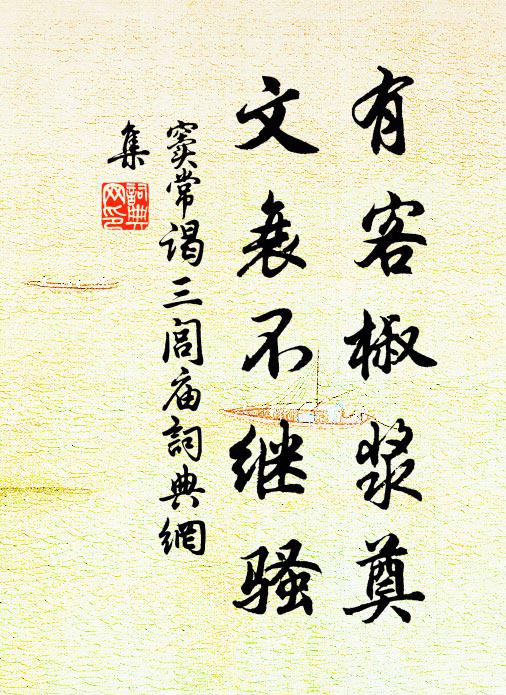 有客椒浆奠
文衰不继骚
窦常谒三闾庙詞典網
集
詞典
网印